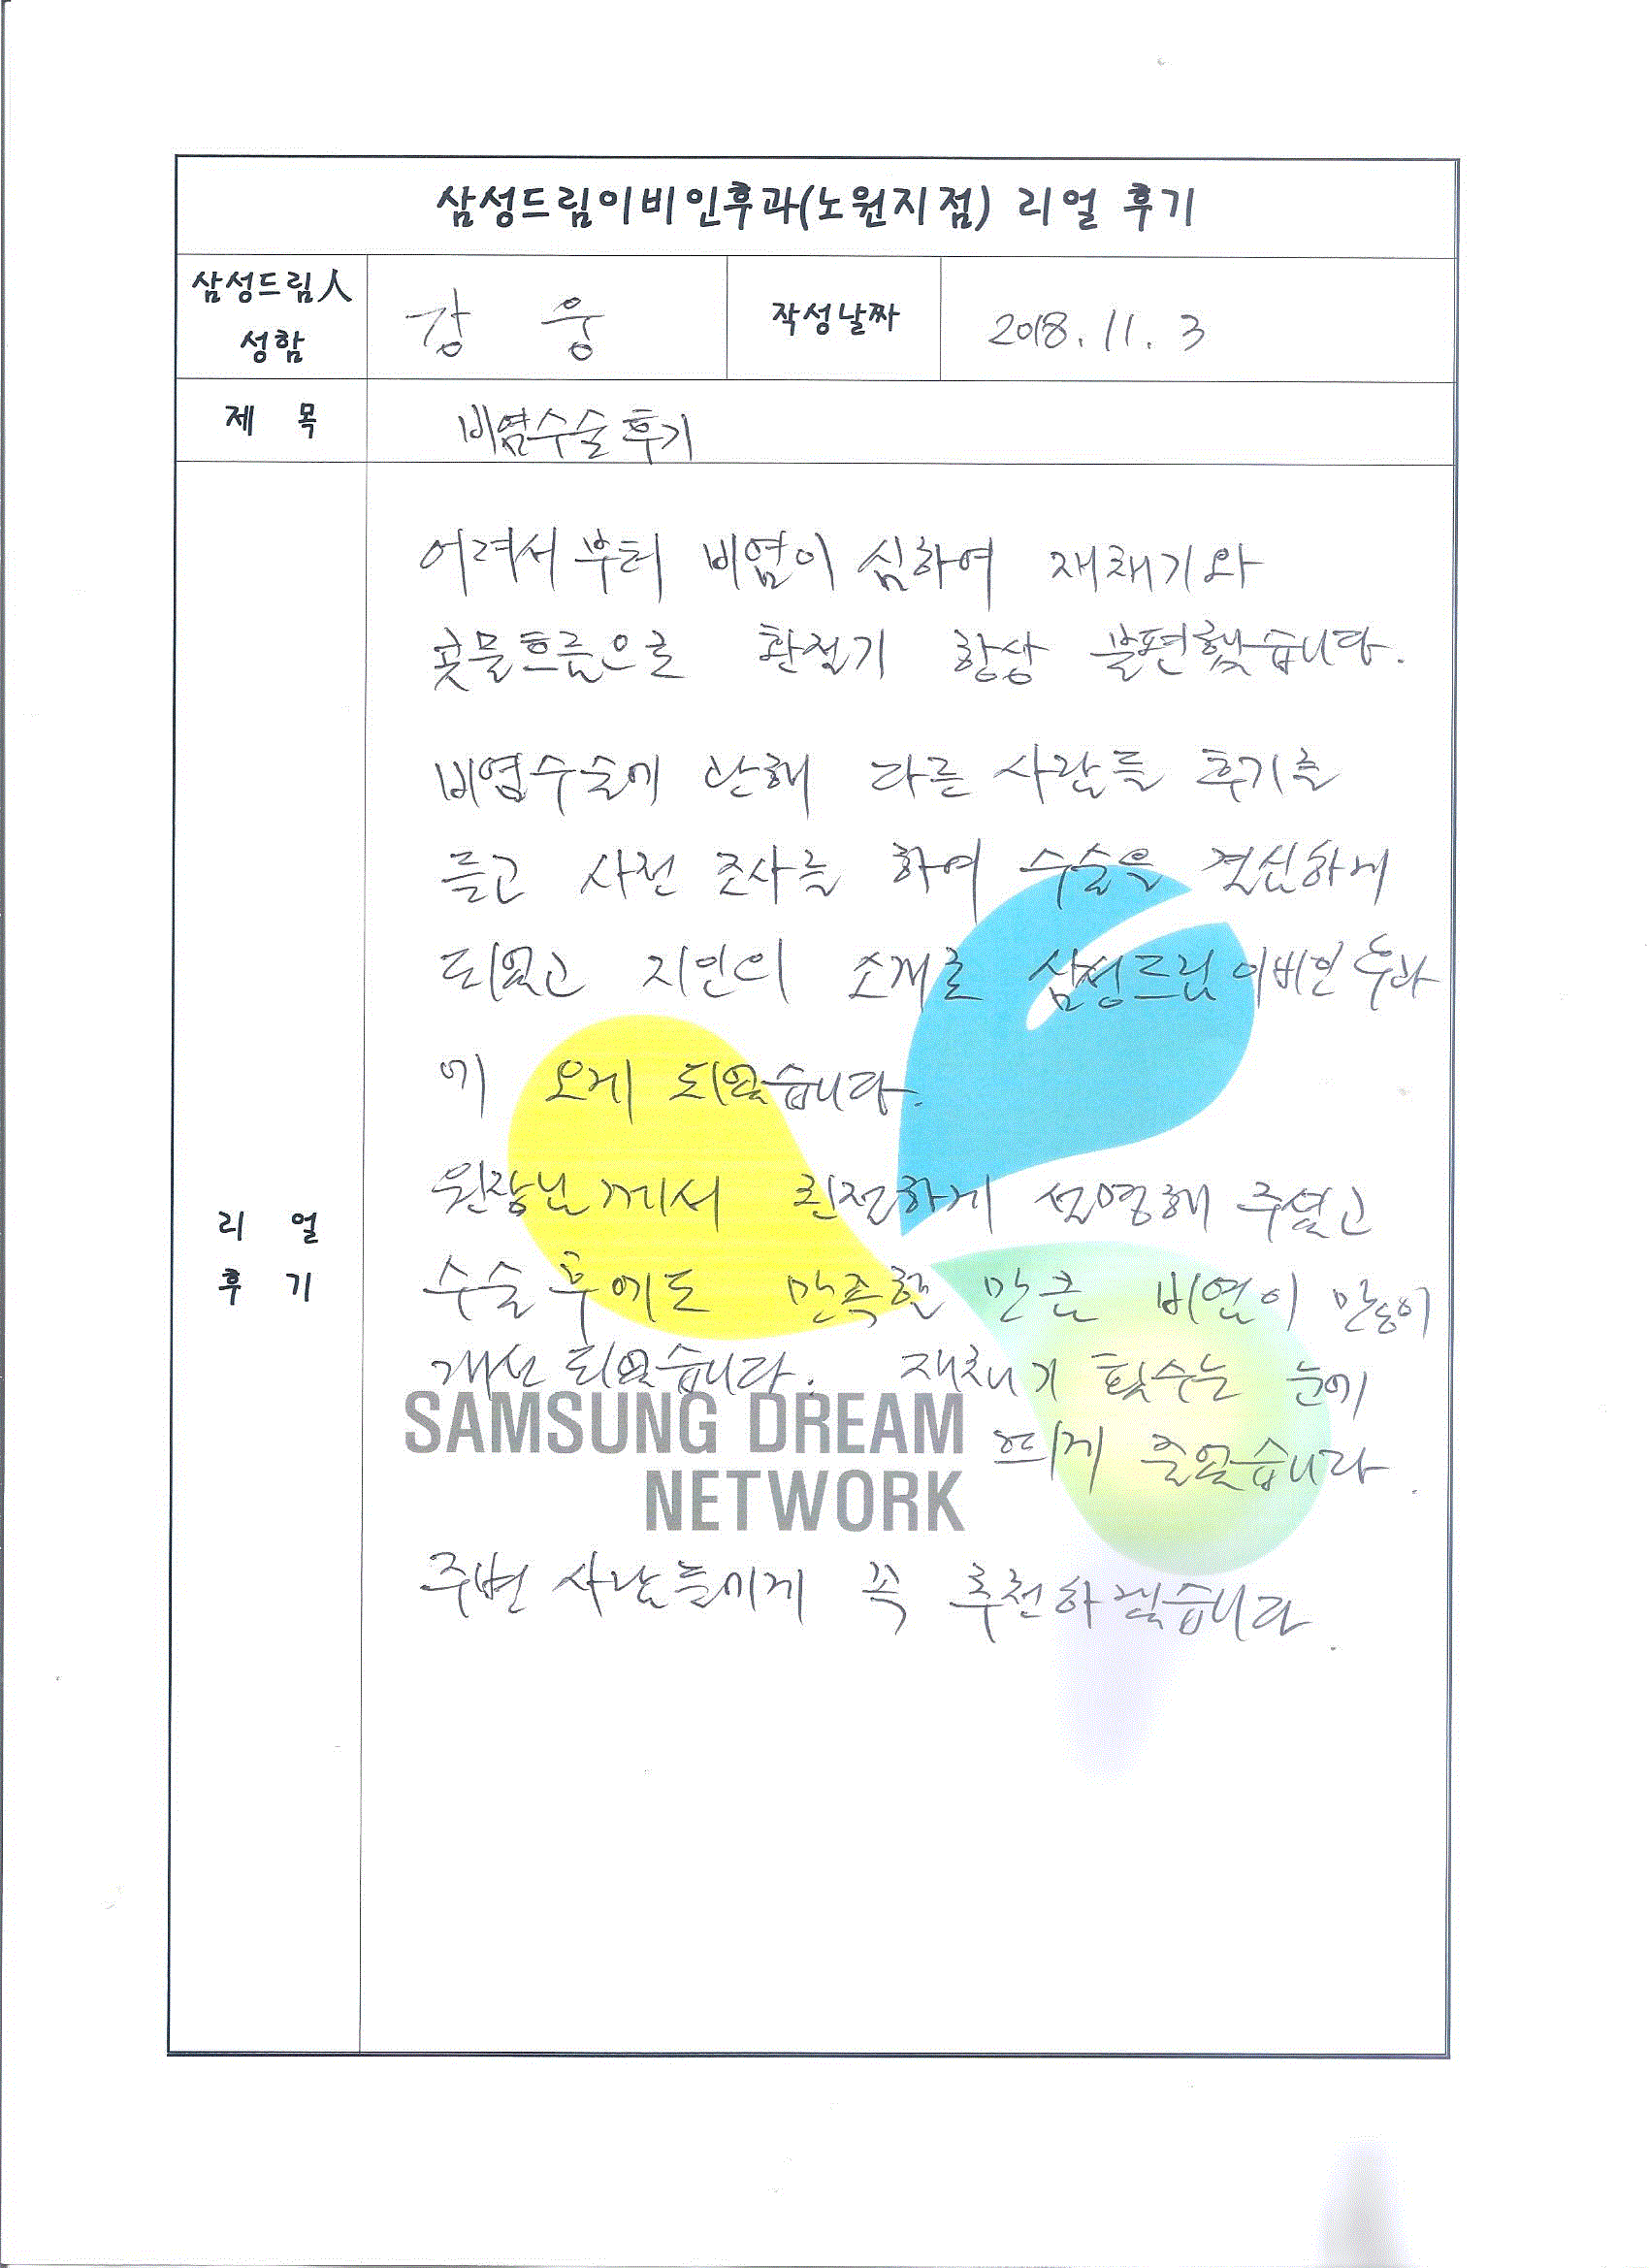 삼성드림이비인후과(노원지점) 리얼 후기
삼성드림人
성함
강 웅
작성날짜
2018. 11. 3
제 목
비염수술 후기
어려서 부터 비염이 심하여 재채기와
콧물흐름으로 환절기 항상 불편했습니다.
비염수술에 관해 다른 사람들 후기를
듣고 사전 조사를 하여 수술을 결심하게
되었고 지인의 소개로 삼성드림이비인후과
에 오게 되었습니다.
원장님께서 친절하게 설명해 주셨고
수술 후에도 만족할 만큼 비염이 많이
개선 되었습니다. 재채기 횟수는 눈에
띄게 줄었습니다.
주변 사람들에게 꼭 추천하겠습니다.
리 얼
후 기
SAMSUNG DREAM
NETWORK